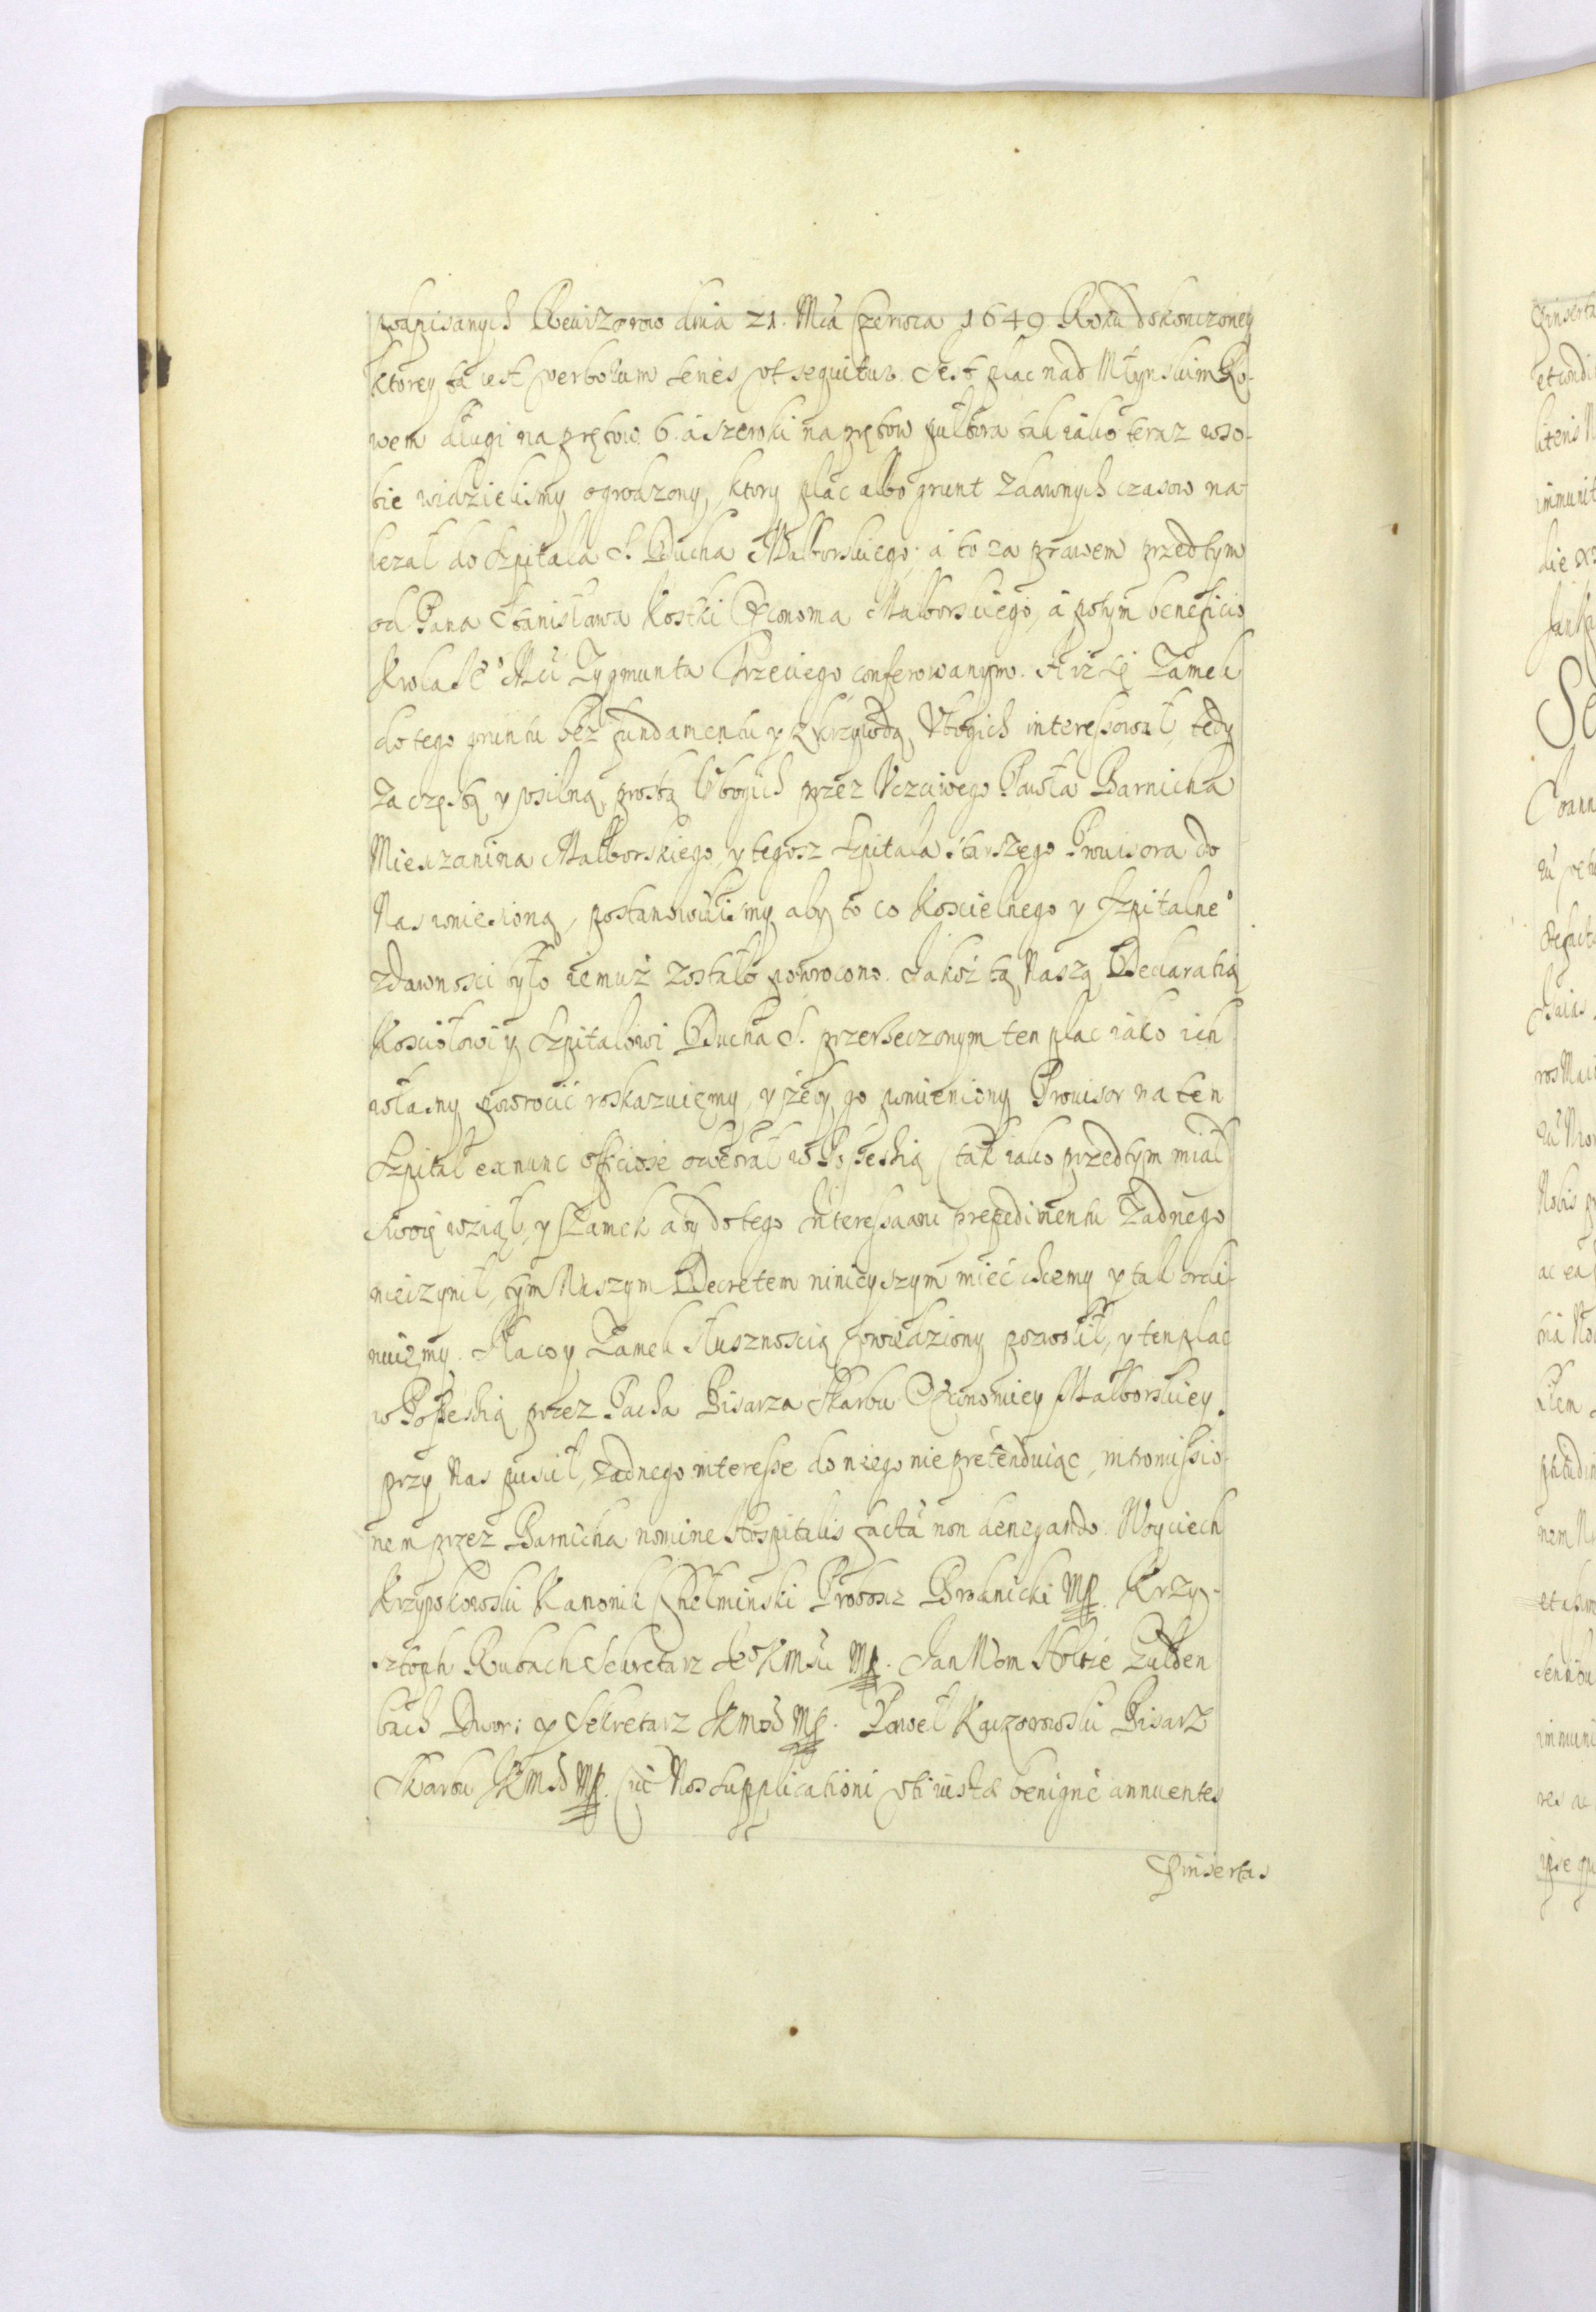 podpisanych Rewizorow dnia 21. Mca Czerwca 1649 Roku dokonczoney
ktorey ta iest verborum series, vt sequitur. Jest plac nad Młynskim Ro-
wem długi na prętow. 6. á szeroki na prętow pułtora tak iako teraz wso-
bie widzielismy ogrodzony, ktory plac albo grunt zdawnych czasow na-
lezał do Szpitala S. Ducha Malborskiego; á to za prawem przedtym
od Pana Stanisława Kostki Œconoma Malborskiego, á potym beneficio
Krola Je° Mci Zygmunta Trzeciego conferowanym. A iż się Zamek
do tego gruntu bez fundamentu y z krzywdą Vbogich interessował, tedy
za częstą y pilną prosbą Vbogich przez Vczciwego Pawła Barnicka
Mieszczanina Malborskiego, y tegosz Szpitala starszego Prouisora do
Nas wniesioną, postanowilismy aby to co Koscielnego y Szpitalne°
zdawnosci było iemuż zostało powrocono. Jakoż tą Naszą Declaratią
Kosciołowi y Szpitalowi Ducha S. przerzeczonym ten plac iako ich
własny powrocić roskazuięmy, y żeby go pomieniony Prouisor na ten
Szpital ex nunc officiose odebrał w Possessią (tak iako przedtym miał)
swoię wziął, y Zamek aby do tego Interessa ani prepedimentu Zadnego
nieczynił, tym Naszym Decretem ninieyszym mieć chcemy y tak ordi-
nuięmy. Na co y Zamek Słusznoscią powiedziony pozwolił, y ten plac
w Possessią przez Pacha Pisarza Skarbu Œconomiey Malborskiey
przy Nas puscił, żadnego interesse do niego nie pretenduiąc, intromissio-
nem przez Barnicka nomine Hospitalis factã non denegando. Woyciech
Krzypkowski Kanonik Chełminski Probosz Brodnicki mp. Krzy-
sztoph Rubach Sekretarz Je° K Msci mp. Jan Von Holtze Zulden
bach Dwor: y Sekretarz JKMsci mp. Paweł Kaczorowski Pisarz
Skarbu JKMsci mp. Cui Nos supplicationi vti iustæ benignè annuentes
Pinsertas